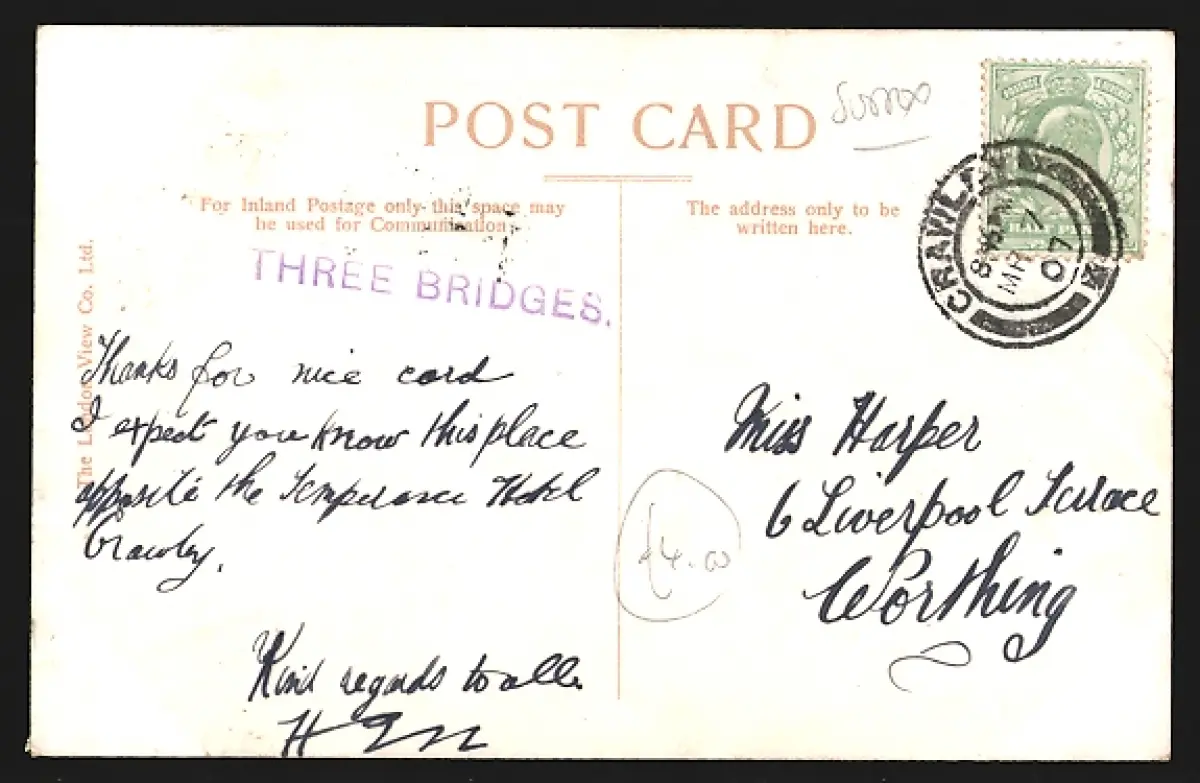 POST CARD
For Inland Postage only this space may
be used for Communication
The address only to be
written here.
THREE BRIDGES.
CRAWLEY
MR
07
HALF PENNY
The London View Co. Ltd.
Thanks for nice card
I expect you know this place
opposite the Temperance Hotel
Crawley.
Kind regards to all.
H
Miss Harper
6 Liverpool Terrace
Worthing
£4.00